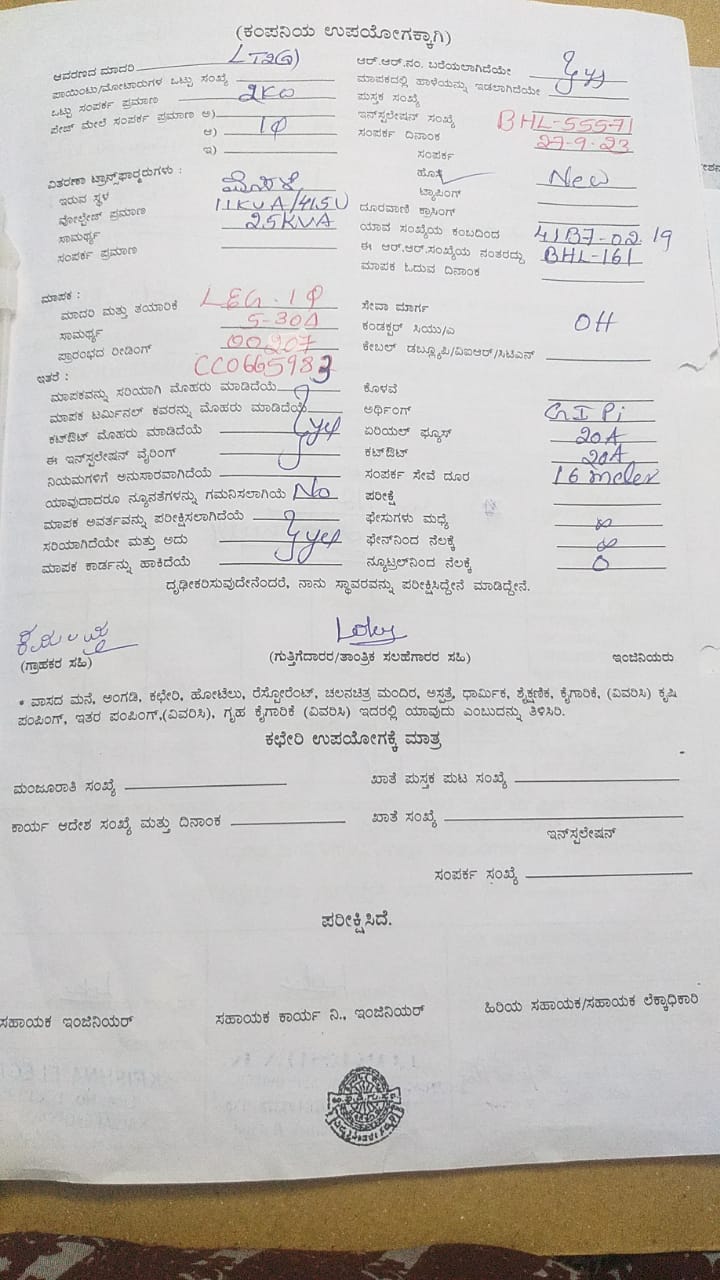 (ಕಂಪನಿಯ ಉಪಯೋಗಕ್ಕಾಗಿ)
ಆವರಣದ ಮಾದರಿ LT2(a)
ಪಾಯಿಂಟು/ಮೋಟಾರುಗಳ ಒಟ್ಟು ಸಂಖ್ಯೆ
ಒಟ್ಟು ಸಂಪರ್ಕ ಪ್ರಮಾಣ 2Kw
ಪೇಜ್ ಮೇಲೆ ಸಂಪರ್ಕ ಪ್ರಮಾಣ ಅ)
ಆ) 1Φ
ಇ)
ಆರ್.ಆರ್.ನಂ. ಬರೆಯಲಾಗಿದೆಯೇ yes
ಮಾಪಕದಲ್ಲಿ ಹಾಳೆಯನ್ನು ಇಡಲಾಗಿದೆಯೇ
ಪುಸ್ತಕ ಸಂಖ್ಯೆ
ಇನ್‌ಸ್ಟಲೇಷನ್ ಸಂಖ್ಯೆ BHL-55571
ಸಂಪರ್ಕ ದಿನಾಂಕ 27-9-23
ಸಂಪರ್ಕ
ಹೊಸ New
ಟ್ಯಾಪಿಂಗ್
ವಿತರಣಾ ಟ್ರಾನ್ಸ್‌ಫಾರ್ಮರುಗಳು :
ಇರುವ ಸ್ಥಳ
ವೋಲ್ಟೇಜ್ ಪ್ರಮಾಣ 11KVA/415V
ಸಾಮರ್ಥ್ಯ 25KVA
ಸಂಪರ್ಕ ಪ್ರಮಾಣ
ದೂರವಾಣಿ ಕ್ರಾಸಿಂಗ್
ಯಾವ ಸಂಖ್ಯೆಯ ಕಂಬದಿಂದ 41B7-02.19
ಈ ಆರ್.ಆರ್.ಸಂಖ್ಯೆಯ ನಂತರದ್ದು BHL-161
ಮಾಪಕ ಓದುವ ದಿನಾಂಕ
ಮಾಪಕ :
ಮಾದರಿ ಮತ್ತು ತಯಾರಿಕೆ LEG.1Φ
ಸಾಮರ್ಥ್ಯ 5-30A
ಪ್ರಾರಂಭದ ರೀಡಿಂಗ್ 00207
CC0665983
ಸೇವಾ ಮಾರ್ಗ
ಕಂಡಕ್ಟರ್ ಸಿಯು/ಎ OH
ಕೇಬಲ್ ಡಬ್ಲ್ಯೂಪಿ/ವಿಐಆರ್/ಸಿಟಿಎನ್
ಇತರೆ :
ಮಾಪಕವನ್ನು ಸರಿಯಾಗಿ ಮೊಹರು ಮಾಡಿದೆಯೆ
ಮಾಪಕ ಟರ್ಮಿನಲ್ ಕವರನ್ನು ಮೊಹರು ಮಾಡಿದೆಯೆ
ಕಟ್‌ಔಟ್ ಮೊಹರು ಮಾಡಿದೆಯೆ yes
ಈ ಇನ್‌ಸ್ಟಲೇಷನ್ ವೈರಿಂಗ್
ನಿಯಮಗಳಿಗೆ ಅನುಸಾರವಾಗಿದೆಯೇ
ಯಾವುದಾದರೂ ನ್ಯೂನತೆಗಳನ್ನು ಗಮನಿಸಲಾಗಿಯೆ No
ಮಾಪಕ ಅವರ್ತವನ್ನು ಪರೀಕ್ಷಿಸಲಾಗಿದೆಯೆ
ಸರಿಯಾಗಿದೆಯೇ ಮತ್ತು ಅದು yes
ಮಾಪಕ ಕಾರ್ಡನ್ನು ಹಾಕಿದೆಯೆ
ಕೊಳವೆ
ಅರ್ಥಿಂಗ್ GI Pi
ಏರಿಯಲ್ ಫ್ಯೂಸ್ 20A
ಕಟ್‌ಔಟ್ 20A
ಸಂಪರ್ಕ ಸೇವೆ ದೂರ 16 meter
ಪರೀಕ್ಷೆ
ಫೇಸುಗಳು ಮಧ್ಯೆ ∞
ಫೇಸ್‌ನಿಂದ ನೆಲಕ್ಕೆ ∞
ನ್ಯೂಟ್ರಲ್‌ನಿಂದ ನೆಲಕ್ಕೆ 0
ದೃಢೀಕರಿಸುವುದೇನೆಂದರೆ, ನಾನು ಸ್ಥಾವರವನ್ನು ಪರೀಕ್ಷಿಸಿದ್ದೇನೆ ಮಾಡಿದ್ದೇನೆ.
(ಗ್ರಾಹಕರ ಸಹಿ) (ಗುತ್ತಿಗೆದಾರರ/ತಾಂತ್ರಿಕ ಸಲಹೆಗಾರರ ಸಹಿ) ಇಂಜಿನಿಯರು
* ವಾಸದ ಮನೆ, ಅಂಗಡಿ, ಕಛೇರಿ, ಹೋಟೆಲು, ರೆಸ್ಟೋರೆಂಟ್, ಚಲನಚಿತ್ರ ಮಂದಿರ, ಅಸ್ಪತ್ರೆ, ಧಾರ್ಮಿಕ, ಶೈಕ್ಷಣಿಕ, ಕೈಗಾರಿಕೆ, (ವಿವರಿಸಿ) ಕೃಷಿ
ಪಂಪಿಂಗ್, ಇತರ ಪಂಪಿಂಗ್,(ವಿವರಿಸಿ), ಗೃಹ ಕೈಗಾರಿಕೆ (ವಿವರಿಸಿ) ಇದರಲ್ಲಿ ಯಾವುದು ಎಂಬುದನ್ನು ತಿಳಿಸಿರಿ.
ಕಛೇರಿ ಉಪಯೋಗಕ್ಕೆ ಮಾತ್ರ
ಮಂಜೂರಾತಿ ಸಂಖ್ಯೆ ಖಾತೆ ಪುಸ್ತಕ ಪುಟ ಸಂಖ್ಯೆ
ಕಾರ್ಯ ಆದೇಶ ಸಂಖ್ಯೆ ಮತ್ತು ದಿನಾಂಕ ಖಾತೆ ಸಂಖ್ಯೆ
ಇನ್‌ಸ್ಟಲೇಷನ್
ಸಂಪರ್ಕ ಸಂಖ್ಯೆ
ಪರೀಕ್ಷಿಸಿದೆ.
ಸಹಾಯಕ ಇಂಜಿನಿಯರ್ ಸಹಾಯಕ ಕಾರ್ಯ ನಿ., ಇಂಜಿನಿಯರ್ ಹಿರಿಯ ಸಹಾಯಕ/ಸಹಾಯಕ ಲೆಕ್ಕಾಧಿಕಾರಿ